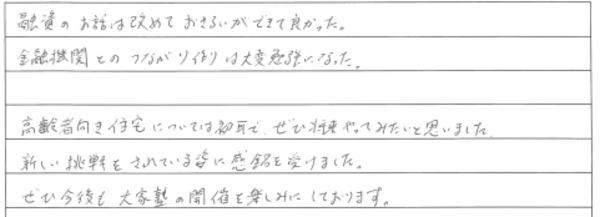 融資のお話は改めておさらいができて良かった。
金融機関とのつながり作りは大変勉強になった。
高齢者向き住宅については初耳で、ぜひ将来やってみたいと思いました。
新しい挑戦をされている姿に感銘を受けました。
ぜひ今後も大家塾の開催を楽しみにしております。